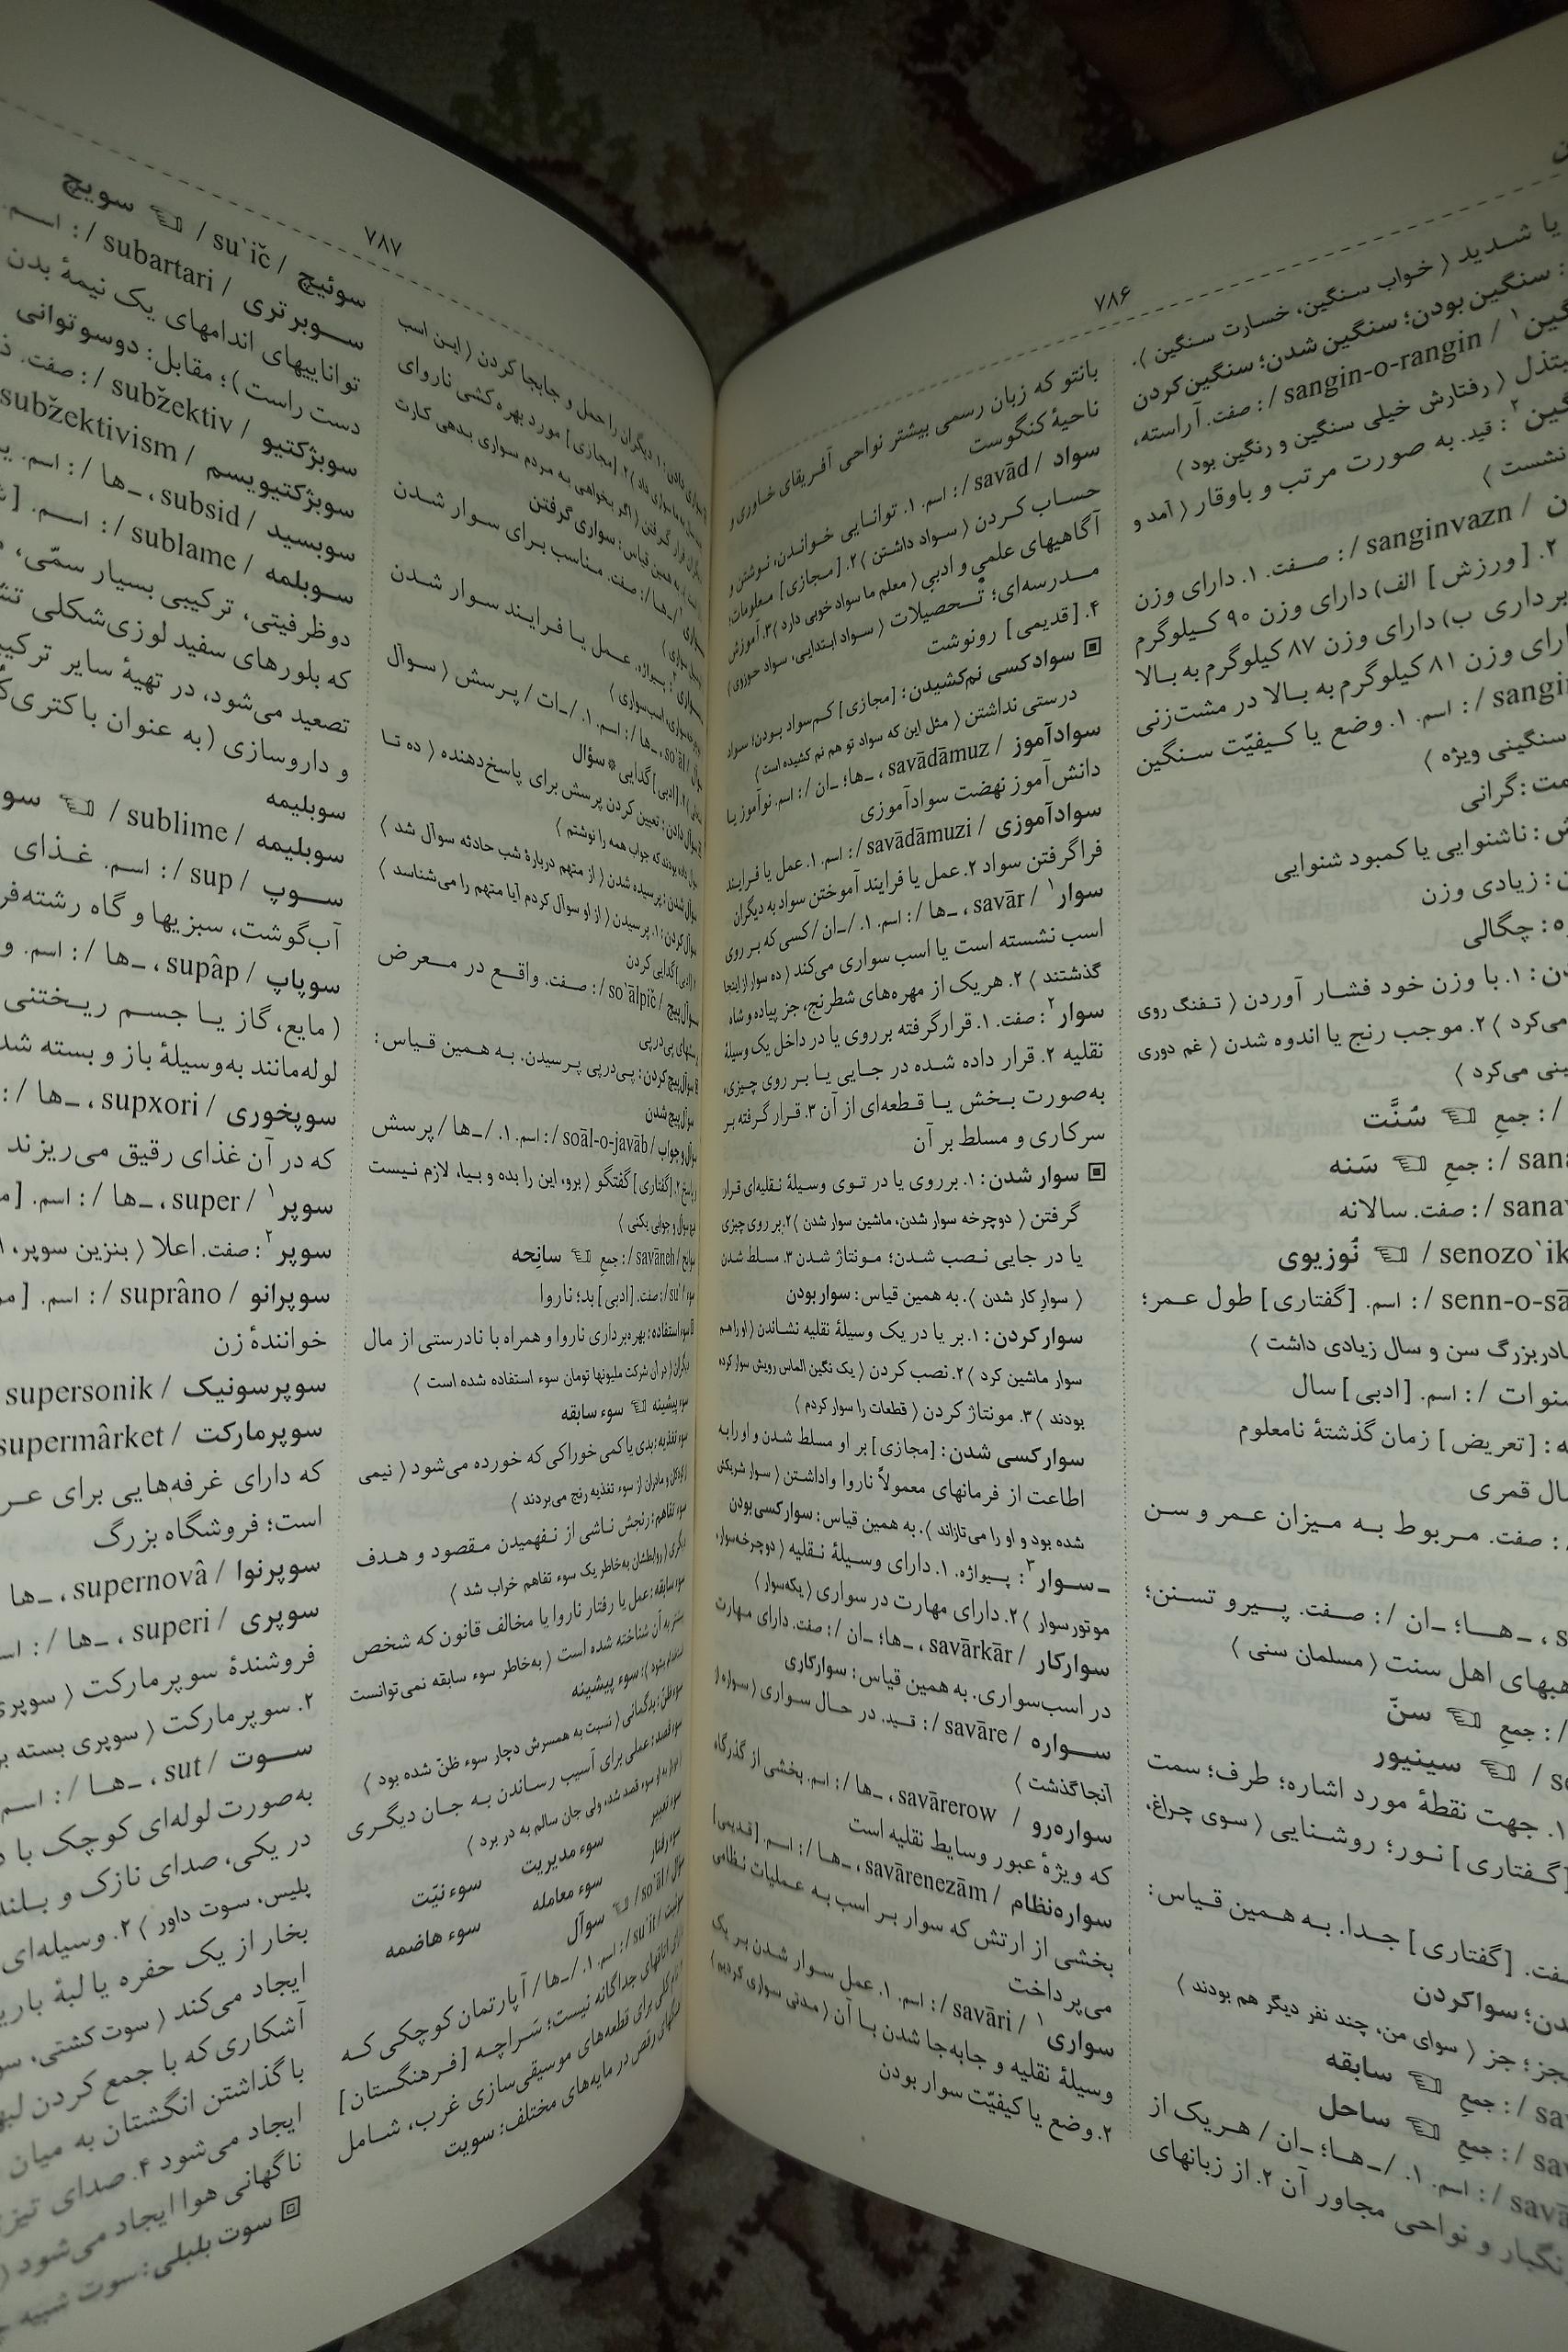 ۷۸۶
یا شـدید ⟨ خـواب سـنگین، خسـارت سـنگین ⟩.
: سنگین بودن؛ سنگین شدن؛ سنگین کردن
گین۱ / sangin-o-rangin /: صفت. آراسته،
بتذل ⟨ رفتارش خیلی سنگین و رنگین بود ⟩
گین۲: قید. به صورت مرتب و باوقار ⟨ آمد و
نشست ⟩
ن / sanginvazn /: صـفت. ۱. دارای وزن
۲. [ورزش] الف) دارای وزن ۹۰ کـیلوگرم
برداری ب) دارای وزن ۸۷ کیلوگرم به بـالا
ارای وزن ۸۱ کیلوگرم به بـالا در مشت‌زنی
/ sangi /: اسم. ۱. وضع یا کـیفیّت سـنگین
سنگینی ویژه ⟩
مت: گرانی
ش: ناشنوایی یا کمبود شنوایی
ن: زیادی وزن
ه: چگالی
دن: ۱. با وزن خود فشـار آوردن ⟨ تـفنگ روی
می‌کرد ⟩ ۲. موجب رنج یا اندوه شدن ⟨ غم دوری
ینی می‌کرد ⟩
/: جمعِ ☜ سُنَّت
/ sana /: جمعِ ☜ سَنه
/ sana /: صفت. سالانه
/ senozo`ik ☜ نُوزیوی
/ senn-o-sā /: اسم. [گفتاری] طول عـمر؛
ادربزرگ سن و سال زیادی داشت ⟩
سنوات /: اسم. [ادبی] سال
ه: [تعریض] زمان گذشتهٔ نامعلوم
ال قمری
: صفت. مـربوط بـه مـیزان عـمر و سـن
، ـ هـا؛ ـ ان /: صـفت. پـیرو تسـنن؛
هبهای اهل سنت ⟨ مسلمان سنی ⟩
/: جمعِ ☜ سنّ
/ se ☜ سینیور
۱. جهت نقطهٔ مورد اشاره؛ طرف؛ سمت
[گـفتاری] نـور؛ روشـنایی ⟨ سوی چراغ،
صفت. [گفتاری] جـدا. بـه هـمین قـیاس:
دن؛ سواکردن
بجز؛ جز ⟨ سوای من، چند نفر دیگر هم بودند ⟩
/ sa /: جمعِ ☜ سابقه
/ sa /: جمعِ ☜ ساحل
/ savā /: اسم. ۱. / ـ هـا؛ ـ ان / هـریک از
نگبار و نواحی مجاور آن ۲. از زبانهای
بانتو که زبان رسمی بیشتر نواحی آفـریقای خـاوری و
ناحیهٔ کنگوست
سواد / savād /: اسم. ۱. توانـایی خـوانـدن، نـوشتن و
حسـاب کـردن ⟨ سـواد داشـتن ⟩ ۲. [مـجازی] مـعلومات؛
آگاهیهای علمی و ادبی ⟨ معلم ما سواد خوبی دارد ⟩ ۳. آموزش
مـدرسه‌ای؛ تـحصیلات ⟨ سـواد ابتدایی، سواد حوزوی ⟩
۴. [قدیمی] رونوشت
▣ سواد کسی نم کشیدن: [مجازی] کـم‌سواد بـودن؛ سواد
درستی نداشتن ⟨ مثل این که سواد تو هم نم کشیده است ⟩
سوادآموز / savādāmuz، ـ ها؛ ـ ان /: اسم. نوآموز یـا
دانش‌آموز نهضت سوادآموزی
سوادآموزی / savādāmuzi /: اسم. ۱. عمل یا فـرایـند
فراگرفتن سواد ۲. عمل یا فرایند آموختن سواد به دیگران
سوار۱ / savār، ـ ها /: اسم. ۱. / ـ ان / کسی که بـر روی
اسب نشسته است یا اسب سواری می‌کند ⟨ ده سوار از اینجا
گذشتند ⟩ ۲. هر یک از مهره‌های شطرنج، جز پیاده و شاه
سوار۲: صفت. ۱. قرارگرفته برروی یا در داخل یک وسیلهٔ
نقلیه ۲. قرار داده شـده در جـایی یـا بـر روی چـیزی،
به‌صورت بـخش یـا قـطعه‌ای از آن ۳. قـرار گـرفته بـر
سرکاری و مسلط بر آن
▣ سوار شدن: ۱. برروی یا در تـوی وسـیلهٔ نـقلیه‌ای قـرار
گرفتن ⟨ دوچرخه سوار شدن، ماشین سوار شدن ⟩ ۲. بر روی چیزی
یا در جایی نـصب شـدن؛ مـونتاژ شـدن ۳. مسـلط شدن
⟨ سوارِ کار شدن ⟩. به همین قیاس: سوار بودن
سوار کردن: ۱. بر یا در یک وسیلهٔ نقلیه نشـاندن ⟨ او را هـم
سوار ماشین کرد ⟩ ۲. نصب کردن ⟨ یک نگین الماس رویش سوار کرده
بودند ⟩ ۳. مونتاژ کردن ⟨ قطعات را سوار کردم ⟩
سوار کسی شدن: [مجازی] بر او مسلط شـدن و او را بـه
اطاعت از فرمانهای معمولاً ناروا واداشـتن ⟨ سـوار شریکش
شده بود و او را می‌تازاند ⟩. به همین قیاس: سوار کسی بودن
ـ سـوار۳: پـیواژه. ۱. دارای وسـیلهٔ نـقلیه ⟨ دوچرخه‌سوار،
موتورسوار ⟩ ۲. دارای مهارت در سواری ⟨ یکه‌سوار ⟩
سوارکار / savārkār، ـ ها؛ ـ ان /: صفت. دارای مـهارت
در اسب‌سواری. به همین قیاس: سوارکاری
سـواره / savāre /: قـید. در حـال سـواری ⟨ سـواره از
آنجا گذشت ⟩
سواره‌رو / savārerow، ـ ها /: اسم. بخشی از گذرگاه
که ویژهٔ عبور وسایط نقلیه است
سواره‌نظام / savārenezām، ـ هـا /: اسـم. [قـدیمی]
بخشی از ارتش که سوار بـر اسب بـه عـملیات نـظامی
می‌پرداخت
سواری۱ / savāri /: اسم. ۱. عمل سـوار شـدن بـر یک
وسیلهٔ نقلیه و جابه‌جا شدن بـا آن ⟨ مـدتی سـواری کردیم ⟩
۲. وضع یا کیفیّت سوار بودن
۷۸۷
سواری دادن: ۱. دیگران را حمل و جابجا کردن ⟨ ایـن اسب
به ما سواری داد ⟩ ۲. [مجازی] مورد بهره‌کشی ناروای
دیگران قرار گرفتن ⟨ اگر بخواهی به مردم سواری بـدهی کارت
به همین قیاس: سواری گرفتن
سواری /: صفت. مـناسب بـرای سـوار شـدن
سواری ⟩
سواری: پـیواژه. عـمل یـا فـرایـند سـوار شـدن
اسب‌سواری ⟩
سوآل / so'āl، ـ ها /: اسم. ۱. / ـ ات / پـرسش ⟨ سـوآل
۲. [ادبی] گدایی * سؤال
سوآل دادن: تعیین کردن پرسش برای پاسخ‌دهنده ⟨ ده تـا
سوآل داده بودند که جواب همه را نوشتم ⟩
سوآل شدن: پرسیده شدن ⟨ از متهم دربارهٔ شب حادثه سوآل شد ⟩
سوآل کردن: ۱. پرسیدن ⟨ از او سوآل کردم آیا متهم را می‌شناسد ⟩
۲. [ادبی] گدایی کردن
سوآل‌پیچ / so'ālpič /: صـفت. واقـع در مـعرض
پرسشهای پی‌درپی
سوآل‌پیچ کردن: پـی‌درپی پـرسیدن. بـه هـمین قـیاس:
سوآل‌پیچ شدن
سوآل و جواب / soāl-o-javāb /: اسم. ۱. / ـ ها / پرسش
و پاسخ ۲. [گفتاری] گفتگو ⟨ برو، این را بده و بـیا، لازم نـیست
سوآل و جوابی بکنی ⟩
سوانح / savāneh /: جمعِ ☜ سانِحه
سوء / su' /: صفت. [ادبی] بد؛ ناروا
سوء استفاده: بهره‌برداری ناروا و همراه با نادرستی از مال
دیگران ⟨ در آن شرکت ملیونها تومان سوء استفاده شده است ⟩
سوء پیشینه ☜ سوء سابقه
سوء تغذیه: بدی یا کمی خوراکی که خورده می‌شود ⟨ نیمی
از کودکان و مادران از سوء تغذیه رنج می‌بردند ⟩
سوء تفاهم: رنجش نـاشی از نـفهمیدن مـقصود و هـدف
دیگری ⟨ روابطشان به‌خاطر یک سوء تفاهم خراب شد ⟩
سوء سابقه: عمل یا رفتار ناروا یا مخالف قانون که شخص
پیشتر به آن شناخته شده است ⟨ به‌خاطر سوء سابقه نمی‌توانست
استخدام بشود ⟩؛ سوء پیشینه
سوء ظنّ: بدگمانی ⟨ نسبت به همسرش دچار سوء ظنّ شده بود ⟩
سوء قصد: عملی برای آسیب رسـاندن بـه جـان دیگـری
سوء قصد شد، ولی جان سالم به در برد ⟩
سوء تعبیر
سوء مدیریت
سوء نیّت
سوء رفتار
سوء معامله
سوء هاضمه
سؤال / so'āl / ☜ سوآل
سوئیت / su'it /: اسم. ۱. / ـ ها / آپارتمان کوچکی کـه
دارای اتاقهای جداگانه نیست؛ سَـراچـه [فـرهنگستان]
نام کلی برای قطعه‌های موسیقی‌سازی غرب، شـامل
آهنگهای رقص در مایه‌های مختلف: سویت
سوئیچ / su`ič / ☜ سویچ
سـوبرتری / subartari /: اسـم.
تواناییهای اندامهای یک نیمهٔ بدن
دست راست)؛ مقابل: دوسو توانی
سوبژکتیو / subžektiv /: صفت. ذ
سوبژکتیویسم / subžektivism
سوبسید / subsid، ـ ها /: اسم. یـ
سـوبلمه / sublame /: اسـم. [شـ
دوظرفیتی، ترکیبی بسیار سمّی،
که بلورهای سفید لوزی‌شکلی تش
تصعید می‌شود، در تهیهٔ سایر ترکیب
و داروسازی (به عنوان باکتری‌کُـ
سوبلیمه
سوبلیمه / sublime / ☜ سو
سـوپ / sup /: اسـم. غـذای
آب‌گوشت، سبزیها و گاه رشته‌فر
سوپاپ / supâp، ـ ها /: اسم. و
⟨ مایع، گاز یـا جسـم ریـختنی
لوله‌مانند به‌وسیلهٔ باز و بسته شد
سوپخوری / supxori، ـ ها /:
که در آن غذای رقیق می‌ریزند
سوپر۱ / super، ـ ها /: اسم. [مـ
سوپر۲: صفت. اعلا ⟨ بنزین سوپر، ا
سوپرانو / suprâno /: اسم. [مـ
خوانندهٔ زن
سوپرسونیک / supersonik
سوپرمارکت / supermârket
که دارای غرفه‌هایی برای عـر
است؛ فروشگاه بزرگ
سوپرنوا / supernovâ، ـ ها
سوپری / superi، ـ ها /: اسـ
فروشندهٔ سوپرمارکت ⟨ سوپری
۲. سوپرمارکت ⟨ سوپری بسته بو
سـوت / sut، ـ هـا /: اسـم
به‌صورت لوله‌ای کوچک با د
در یکی، صدای نازک و بـلند
پلیس، سوت داور ⟩ ۲. وسیله‌ای
بخار از یک حفره یا لبهٔ باریـ
ایجاد می‌کند ⟨ سوت کشتی، سو
آشکاری که با جمع کردن لبهـ
با گذاشتن انگشتان به میان
ایجاد می‌شود ۴. صدای تیز
ناگهانی هوا ایجاد می‌شود ⟨
▣ سوت بلبلی: سوت شبیه